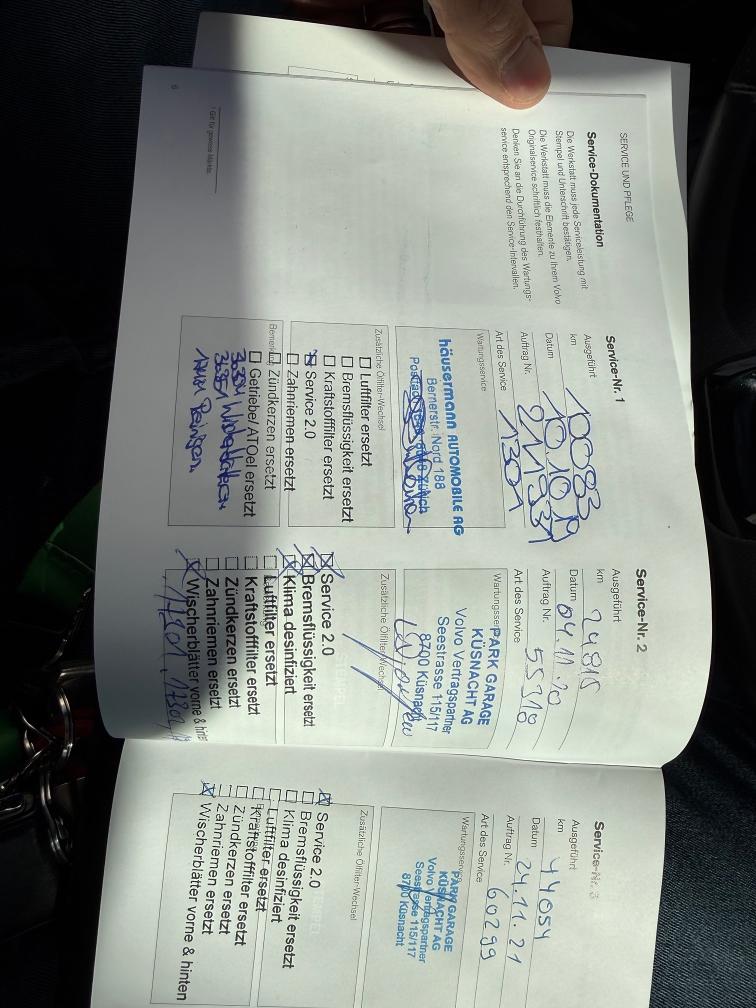 SERVICE UND PFLEGE
Service-Dokumentation
Die Werkstatt muss jede Serviceleistung mit
Stempel und Unterschrift bestätigen.
Die Werkstatt muss die Elemente zu Ihrem Volvo
Originalservice schriftlich festhalten.
Denken Sie an die Durchführung des Wartungs-
service entsprechend den Service-Intervallen.
6
Service-Nr. 1
Ausgeführt
km 10083
Datum 10.10.19
Auftrag Nr. 211931
Art des Service 1301
Wartungsservice
häusermann AUTOMOBILE AG
Bernerstr. Nord 188
Zusätzliche Ölfilter-Wechsel
Luftfilter ersetzt
Bremsflüssigkeit ersetzt
Kraftstofffilter ersetzt
Service 2.0
Zahnriemen ersetzt
Zündkerzen ersetzt
Getriebe/ATOel ersetzt
Service-Nr. 2
Ausgeführt
km 24815
Datum 04.11.20
Auftrag Nr. 55318
Art des Service
PARK GARAGE
KÜSNACHT AG
Volvo Vertragspartner
Seestrasse 115/117
8700 Küsnacht
Zusätzliche Ölfilter-Wechsel
Service 2.0
Bremsflüssigkeit ersetzt
Klima desinfiziert
Luftfilter ersetzt
Kraftstofffilter ersetzt
Zündkerzen ersetzt
Zahnriemen ersetzt
Wischerblätter vorne &
17301, 17304,
Service-Nr. 3
Ausgeführt
km 44054
Datum 24.11.21
Auftrag Nr. 60299
Art des Service
Wartungsservice
PARK GARAGE
KÜSNACHT AG
Volvo Vertragspartner
Seestrasse 115/117
8700 Küsnacht
Zusätzliche Ölfilter-Wechsel
Service 2.0
Bremsflüssigkeit ersetzt
Klima desinfiziert
Luftfilter ersetzt
Kraftstofffilter ersetzt
Zündkerzen ersetzt
Zahnriemen ersetzt
Wischerblätter vorne & hinten